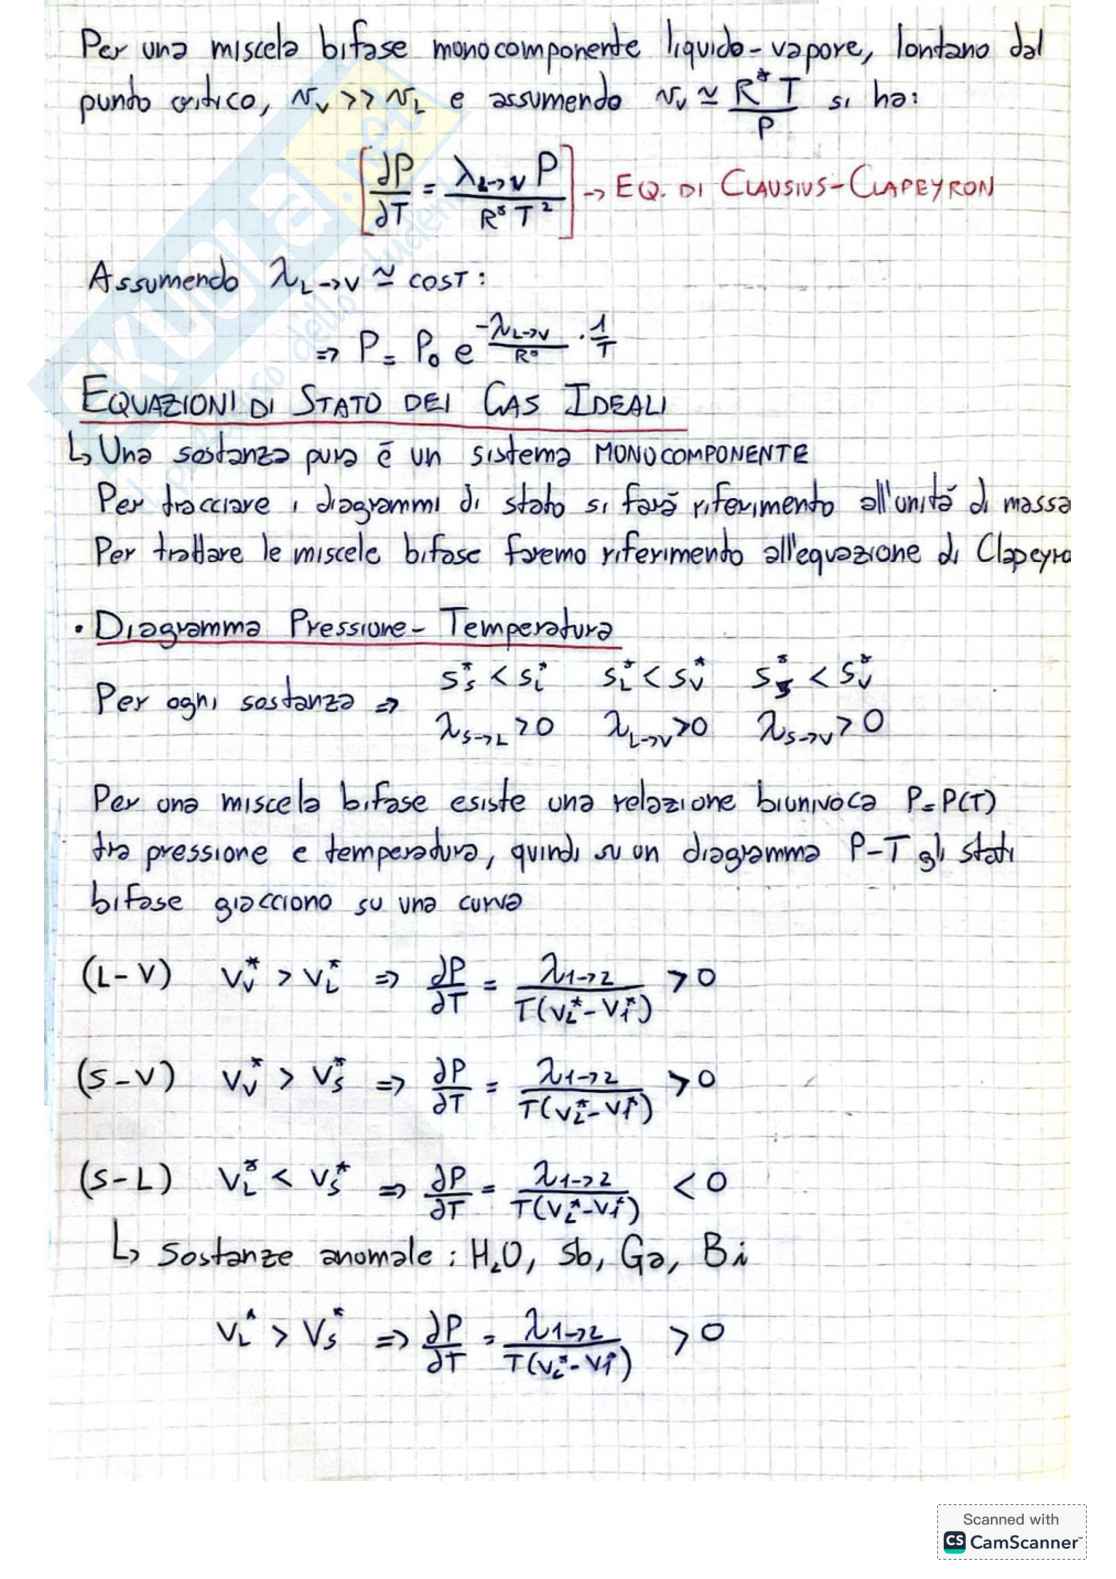 Per una miscela bifase monocomponente liquido-vapore, lontano dal
punto critico, Nv >> NL e assumendo Nv ≃ R*T/P si ha:
[∂P/∂T = λL→V P / R*T²] → EQ. DI CLAUSIUS-CLAPEYRON
Assumendo λL→V ≃ COST:
⇒ P = P₀ e^(-λL→V/R* · 1/T)
EQUAZIONI DI STATO DEI GAS IDEALI
↳ Una sostanza pura è un sistema MONOCOMPONENTE
Per tracciare i diagrammi di stato si farà riferimento all'unità di massa
Per trattare le miscele bifase faremo riferimento all'equazione di Clapeyro
• Diagramma Pressione-Temperatura
Per ogni sostanza ⇒ sS* < sL* sL* < sV* sS* < sV*
λS→L > 0 λL→V > 0 λS→V > 0
Per una miscela bifase esiste una relazione biunivoca P=P(T)
tra pressione e temperatura, quindi su un diagramma P-T gli stati
bifase giacciono su una curva
(L-V) vV* > vL* ⇒ ∂P/∂T = λ1→2 / T(v2*-v1*) > 0
(S-V) vV* > vS* ⇒ ∂P/∂T = λ1→2 / T(v2*-v1*) > 0
(S-L) vL* < vS* ⇒ ∂P/∂T = λ1→2 / T(v2*-v1*) < 0
↳ Sostanze anomale: H₂O, Sb, Ga, Bi
vL* > vS* ⇒ ∂P/∂T = λ1→2 / T(v2*-v1*) > 0
Scanned with
CS CamScanner